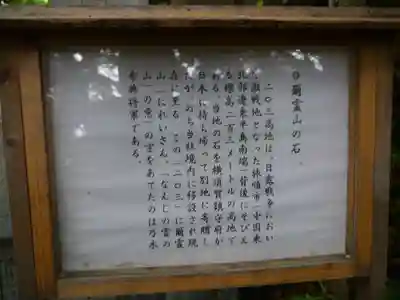 ◎爾霊山の石
二〇三高地は、日露戦争におい
て激戦地となった旅順市(中国東
北部遼東半島南端)背後にそびえ
る標高二百三メートルの高地で
ある。当地の石を横須賀鎮守府が
日本に持ち帰って別地に奉賜し
たが、のち当社境内に移設され現
在に至る。この「二〇三」に爾霊
山(にれいさん、「なんじの霊の
山」の意)の字をあてたのは乃木
希典将軍である。